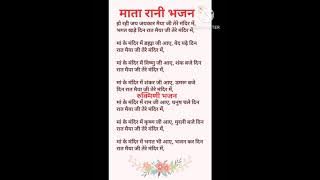 माता रानी भजन
हो रही जय जयकार मैया जी तेरे मंदिर में,
भगत खड़े दिन रात मैया जी तेरे मंदिर में,
मां के मंदिर में ब्रह्मा जी आए, वेद पढ़े दिन
रात मैया जी तेरे मंदिर में,
मां के मंदिर में विष्णु जी आए, शंख बजे दिन
रात मैया जी तेरे मंदिर में,
मां के मंदिर में शंकर जी आए, डमरू बजे
दिन रात मैया जी तेरे मंदिर में,
रुक्मिणी भजन
मां के मंदिर में राम जी आए, धनुष चले दिन
रात मैया जी तेरे मंदिर में,
मां के मंदिर में कृष्ण जी आए, मुरली बजे दिन
रात मैया जी तेरे मंदिर में,
मां के मंदिर में भगत भी आए, भजन करे दिन
रात मैया जी तेरे मंदिर में,